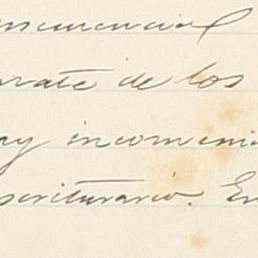 rate de los
ay inconveni
scriturario. En